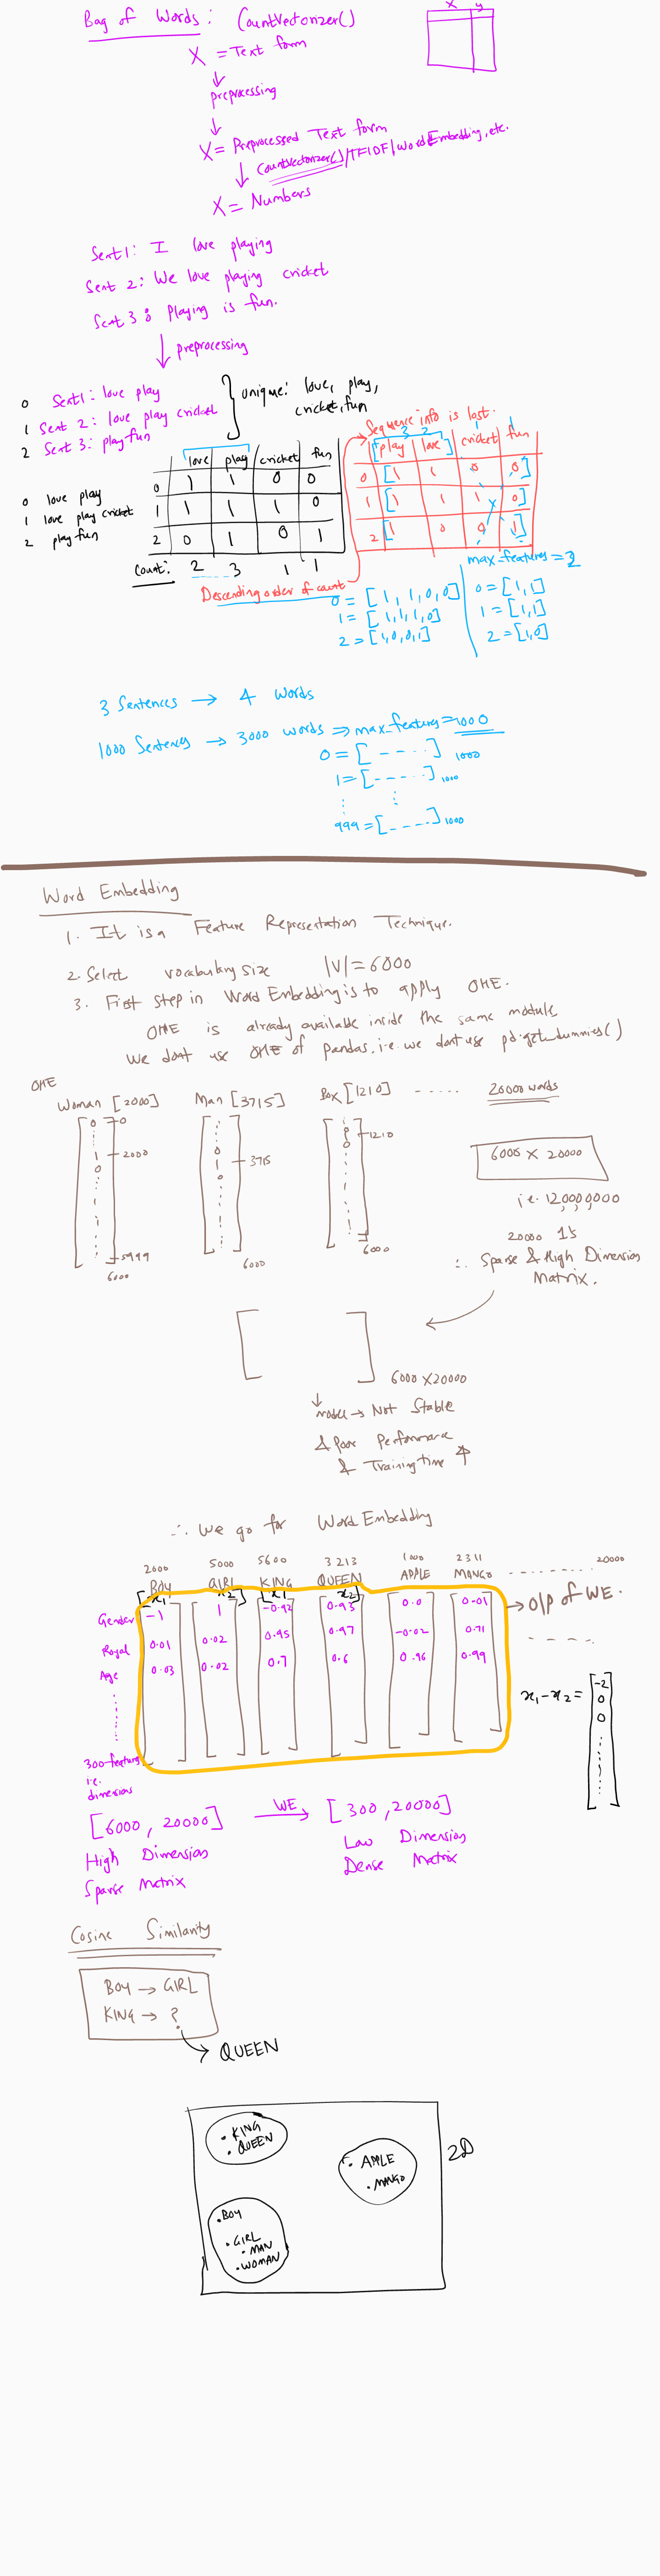 Bag of Words: CountVectorizer()
X y
X = Text form
preprocessing
X = Preprocessed Text form
CountVectorizer()/TFIDF/Word Embedding, etc.
X = Numbers
Sent1: I love playing
Sent 2: We love playing cricket
Sent 3: Playing is fun.
preprocessing
0 Sent1: love play
1 Sent 2: love play cricket
2 Sent 3: play fun
unique: love, play,
cricket, fun
Sequence info is lost.
love play cricket fun
0 1 1 0 0
1 1 1 1 0
2 0 1 0 1
Count: 2 3 1 1
0 love play
1 love play cricket
2 play fun
3 2 1 1
play love cricket fun
0 [1 1 0 0]
1 [1 1 1 0]
2 [1 0 0 1]
Descending order of count
0 = [1, 1, 0, 0]
1 = [1, 1, 1, 0]
2 = [1, 0, 0, 1]
max_features = 2
0 = [1, 1]
1 = [1, 1]
2 = [1, 0]
3 Sentences → 4 Words
1000 Sentences → 3000 words ⇒ max_features = 1000
0 = [ - - - - ] 1000
1 = [ - - - - ] 1000
999 = [ - - - - ] 1000
Word Embedding
1. It is a Feature Representation Technique.
2. Select vocabulary size |V| = 6000
3. First step in Word Embedding is to apply OHE.
OHE is already available inside the same module
We dont use OHE of pandas. i.e. we dont use pd.get_dummies()
OHE
Woman [2000] Man [3715] Box [1210] ..... 20000 words
0 0
1 2000
0
5999
6000
0
1 3715
0
6000
1210
0
6000
6000 × 20000
i.e. 120,000,000
20000 1s
∴ Sparse & High Dimension
Matrix.
[ ] 6000 × 20000
model → Not Stable
& Poor Performance
& Training time ↑
∴ We go for Word Embedding
2000 5000 5600 3213 1000 2311 ......... 20000
BOY GIRL KING QUEEN APPLE MANGO
[x1 x2] [x1 x2]
Gender -1 1 -0.92 0.93 0.0 -0.01 → O/p of WE.
Royal 0.01 0.02 0.95 0.97 -0.02 0.71
Age 0.03 0.02 0.7 0.6 0.96 0.99
x1 - x2 = [-2
0
0
]
300 features
i.e.
dimensions
[6000, 20000] WE → [300, 20000]
High Dimension
Sparse Matrix
Low Dimension
Dense Matrix
Cosine Similarity
BOY → GIRL
KING → ?
QUEEN
• KING
• QUEEN
• APPLE
• MANGO
2D
• BOY
• GIRL
• MAN
• WOMAN